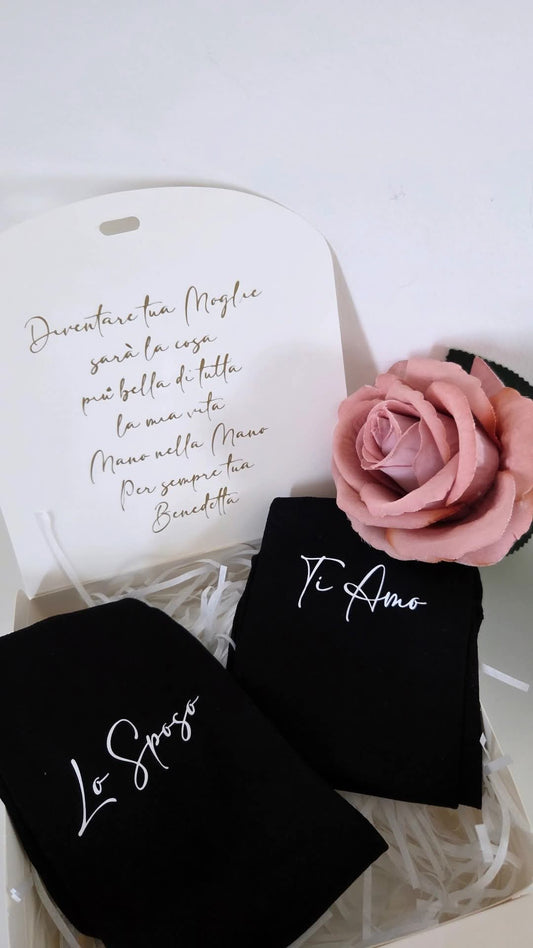 Diventare tua Moglie
sarà la cosa
più bella di tutta
la mia vita
Mano nella Mano
Per sempre tua
Benedetta
Ti Amo
Lo Sposo